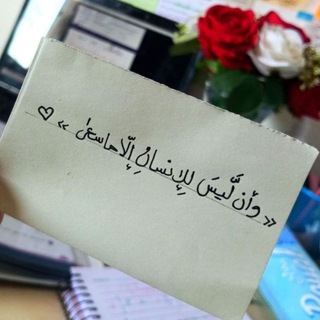 « وأن لَّيسَ لِلإِنسانِ إِلّا ما سعىٰ » ♡